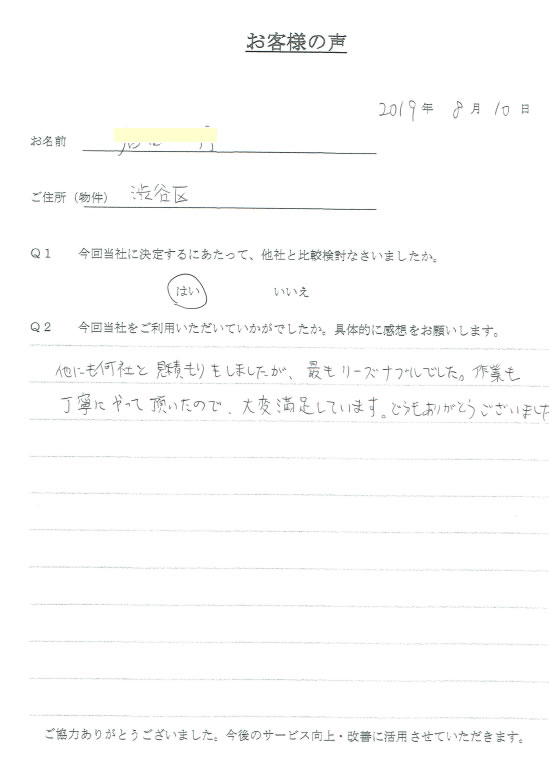 お客様の声
2019年 8月 10日
お名前
ご住所（物件） 渋谷区
Q1 今回当社に決定するにあたって、他社と比較検討なさいましたか。
はい いいえ
Q2 今回当社をご利用いただいていかがでしたか。具体的に感想をお願いします。
他にも何社と見積もりをしましたが、最もリーズナブルでした。作業も
丁寧にやって頂いたので、大変満足しています。どうもありがとうございました
ご協力ありがとうございました。今後のサービス向上・改善に活用させていただきます。